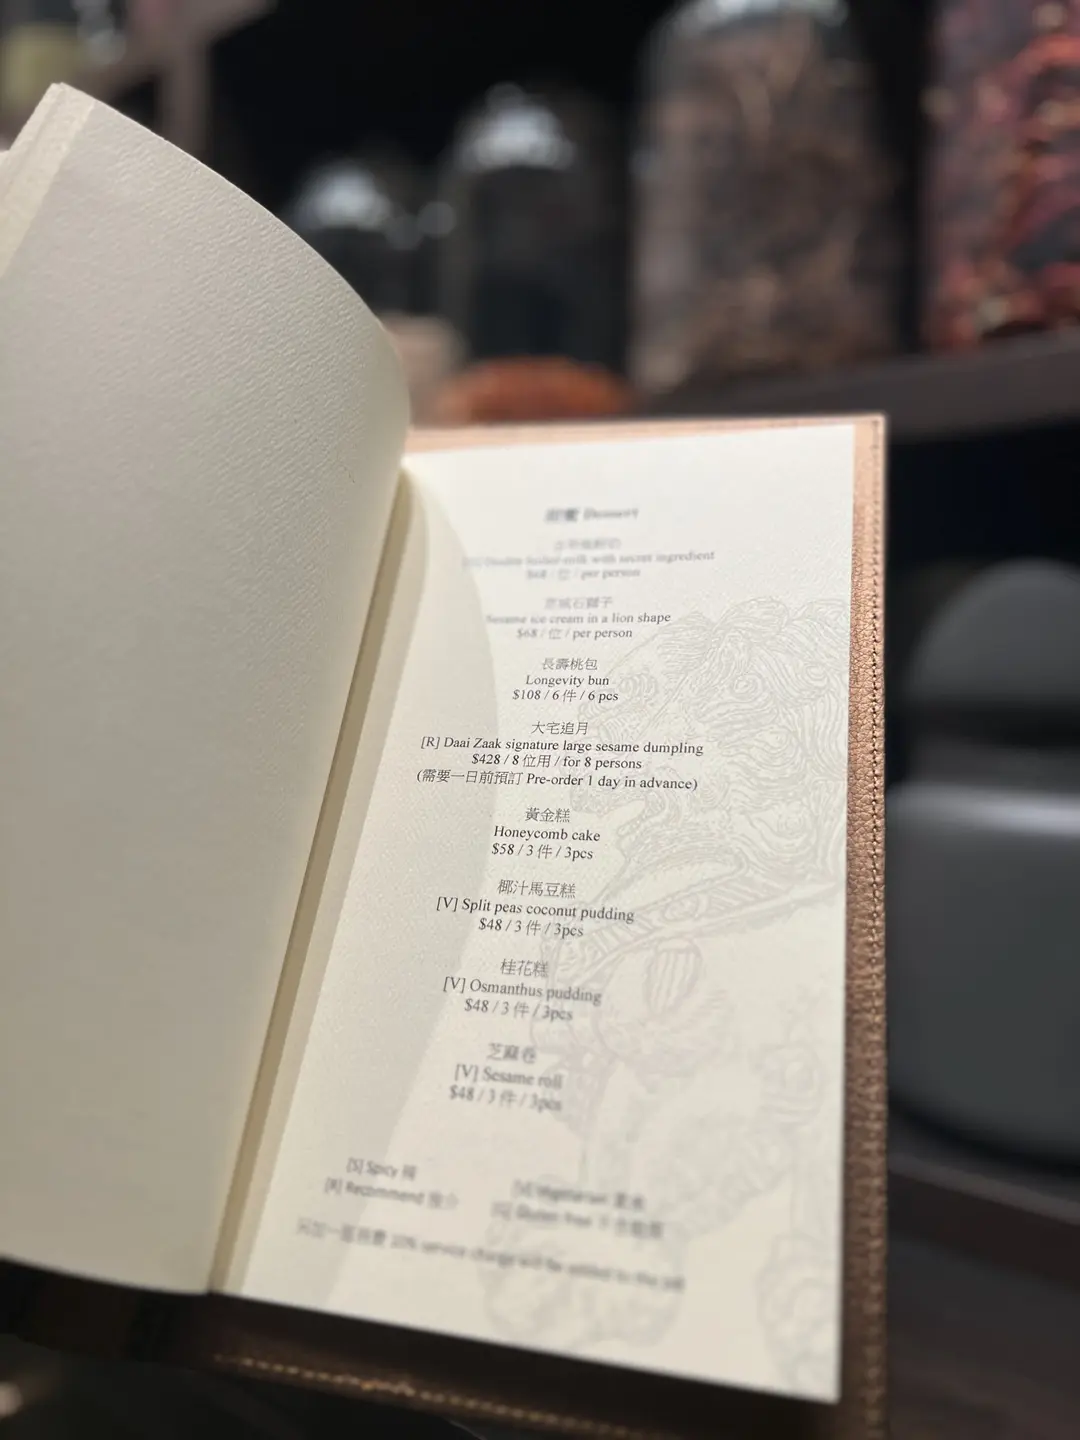 甜蜜 Dessert
milk with secret ingredient
$68 / 位 / per person
石獅子
Sesame ice cream in a lion shape
$68 / 位 / per person
長壽桃包
Longevity bun
$108 / 6 件 / 6 pcs
大宅追月
[R] Daai Zaak signature large sesame dumpling
$428 / 8 位用 / for 8 persons
(需要一日前預訂 Pre-order 1 day in advance)
黃金糕
Honeycomb cake
$58 / 3 件 / 3pcs
椰汁馬豆糕
[V] Split peas coconut pudding
$48 / 3 件 / 3pcs
桂花糕
[V] Osmanthus pudding
$48 / 3 件 / 3pcs
芝麻卷
[V] Sesame roll
$48 / 3 件 / 3pcs
[S] Spicy 辣
[V] Vegetarian 素食
[R] Recommend 推介
[G] Gluten free
另加一服務費 10% service charge will be added to the bill